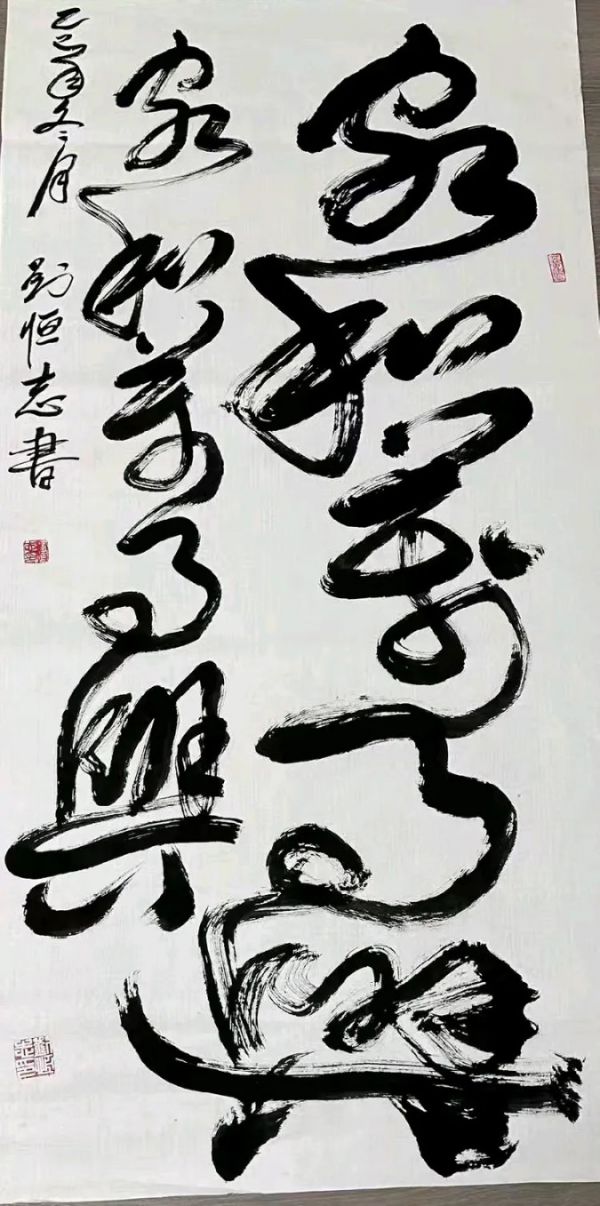 家和萬事興
家和萬事興
乙巳年冬月
劉恒志書